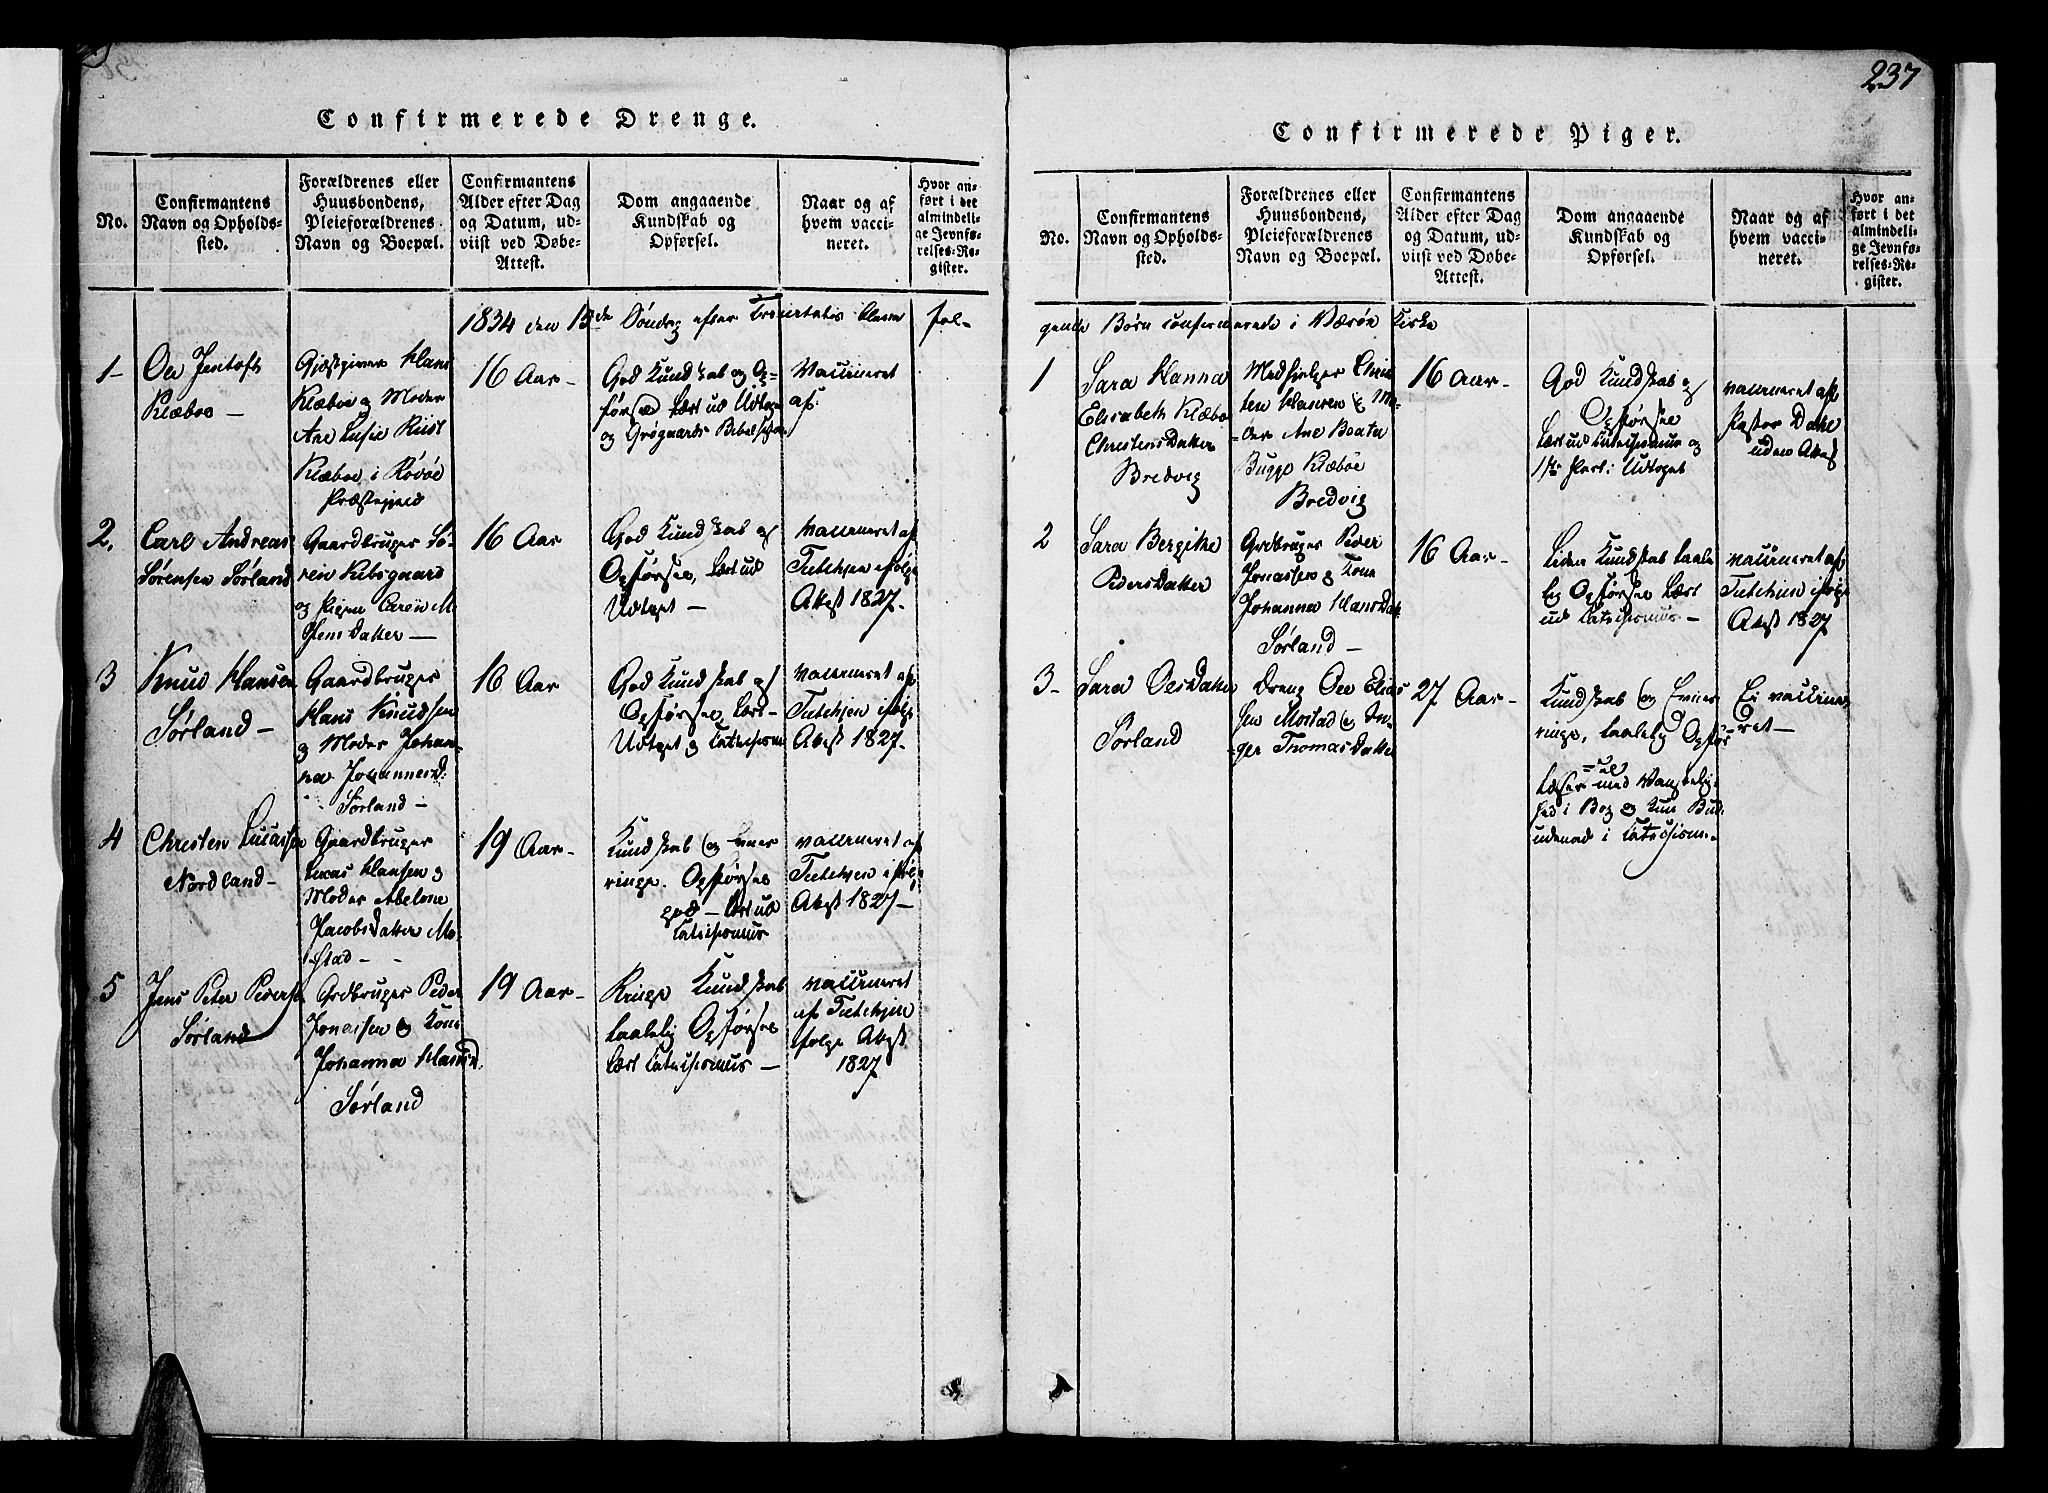 237
Confirmerede Drenge.
No.
Confirmantens
Navn og Opholds-
sted.
Forældrenes eller
Huusbondens,
Pleieforældrenes
Navn og Boepæl.
Confirmantens
Alder efter Dag
og Datum, ud-
viist ved Døbe-
Attest.
Dom angaaende
Kundskab og
Opførsel.
Naar og af
hvem vacci-
neret.
Hvor an-
ført i det
almindeli-
ge Jevnfø-
relses-Re-
gister.
1834 den 15de Søndag efter Trinitatis bleve føl-
1-
Ole Jentoft
Klæboe -
Gjæstgiver Hans
Klæboe og Moder
Ane Lusie Kiist
Klæboe i Rødøe
Præstegjeld
16 Aar -
God Kundskab og Op-
førsel lært ud Udtoget
og Grøgaards
Vaccineret
af.
2.
Carl Andreas
Sørensen Sørland
Gaardbruger Sø-
ren Kibsgaard
og Pigen Caren M.
Jensdatter -
16 Aar
God Kundskab og
Opførsel, lært ud
Udtoget -
Vaccineret af
Tutchjen ifølge
Attest 1827.
3
Knud Hansen
Sørland -
Gaardbruger
Hans Knudsen
og Moder Johan-
na Johannesd:
Sørland -
16 Aar
God Kundskab og
Opførsel, lært
Udtoget og Catechismus
Vaccineret af
Tutchjen ifølge
Attest 1827.
4
Christen Lucassen
Nordland -
Gaardbruger
Lucas Hansen og
Moder Abelone
Jacobsdatter Mo-
stad -
19 Aar -
Kundskab og Evner
ringe. Opførsel
god - lært ud
Catechismus
Vaccineret af
Tutchjen ifølge
Attest 1827 -
5
Jens Peter Peders
Sørland
Grdbruger Peder
Jonassen og Kone
Johanna Hansd.
Sørland
19 Aar -
Ringe Kundskab
taalelig Opførsel
lært Catechismus -
Vaccineret
af Tutchjen
ifølge Attest
1827
Confirmerede Piger.
No.
Confirmantens
Navn og Opholds-
sted.
Forældrenes eller
Huusbondens,
Pleieforældrenes
Navn og Boepæl.
Confirmantens
Alder efter Dag
og Datum, ud-
viist ved Døbe-
Attest.
Dom angaaende
Kundskab og
Opførsel.
Naar og af
hvem vacci-
neret.
Hvor an-
ført i det
almindeli-
ge Jevnfø-
relses-Re-
gister.
gende Børn confirmerede i Værøe Kirke
1
Sara Hanna
Elisabeth Klæboe
Christensdatter
Bredvig
Medhjelper Chris
ten Hansen og Mo-
der Ane Beata
Bugge Klæboe
Bredvig
16 Aar -
God Kundskab og
Opførsel
lært ud Catechismus og
1ste Part: Udtoget
vaccineret af
Pastor Dahl
uden Attest
2
Sara Bergithe
Pedersdatter
Grdbruger Peder
Jonassen og Kone
Johanna Hansdat
Sørland -
16 Aar -
Liden Kundskab taale
lig Opførsel lært
ud Catechismus -
vaccineret af
Tutchjen ifølge
Attest 1827
3-
Sara Olsdatter
Sørland
Dreng Ole Elias
sen Mostad og In-
ger Thomasdatter
27 Aar -
Kundskab og Evner
ringe, taalelig Opførs
-el
Læser med Vanskelig-
hed i Bog og kun Bud.
udenad i Catechism. -
Ei vaccine
ret -